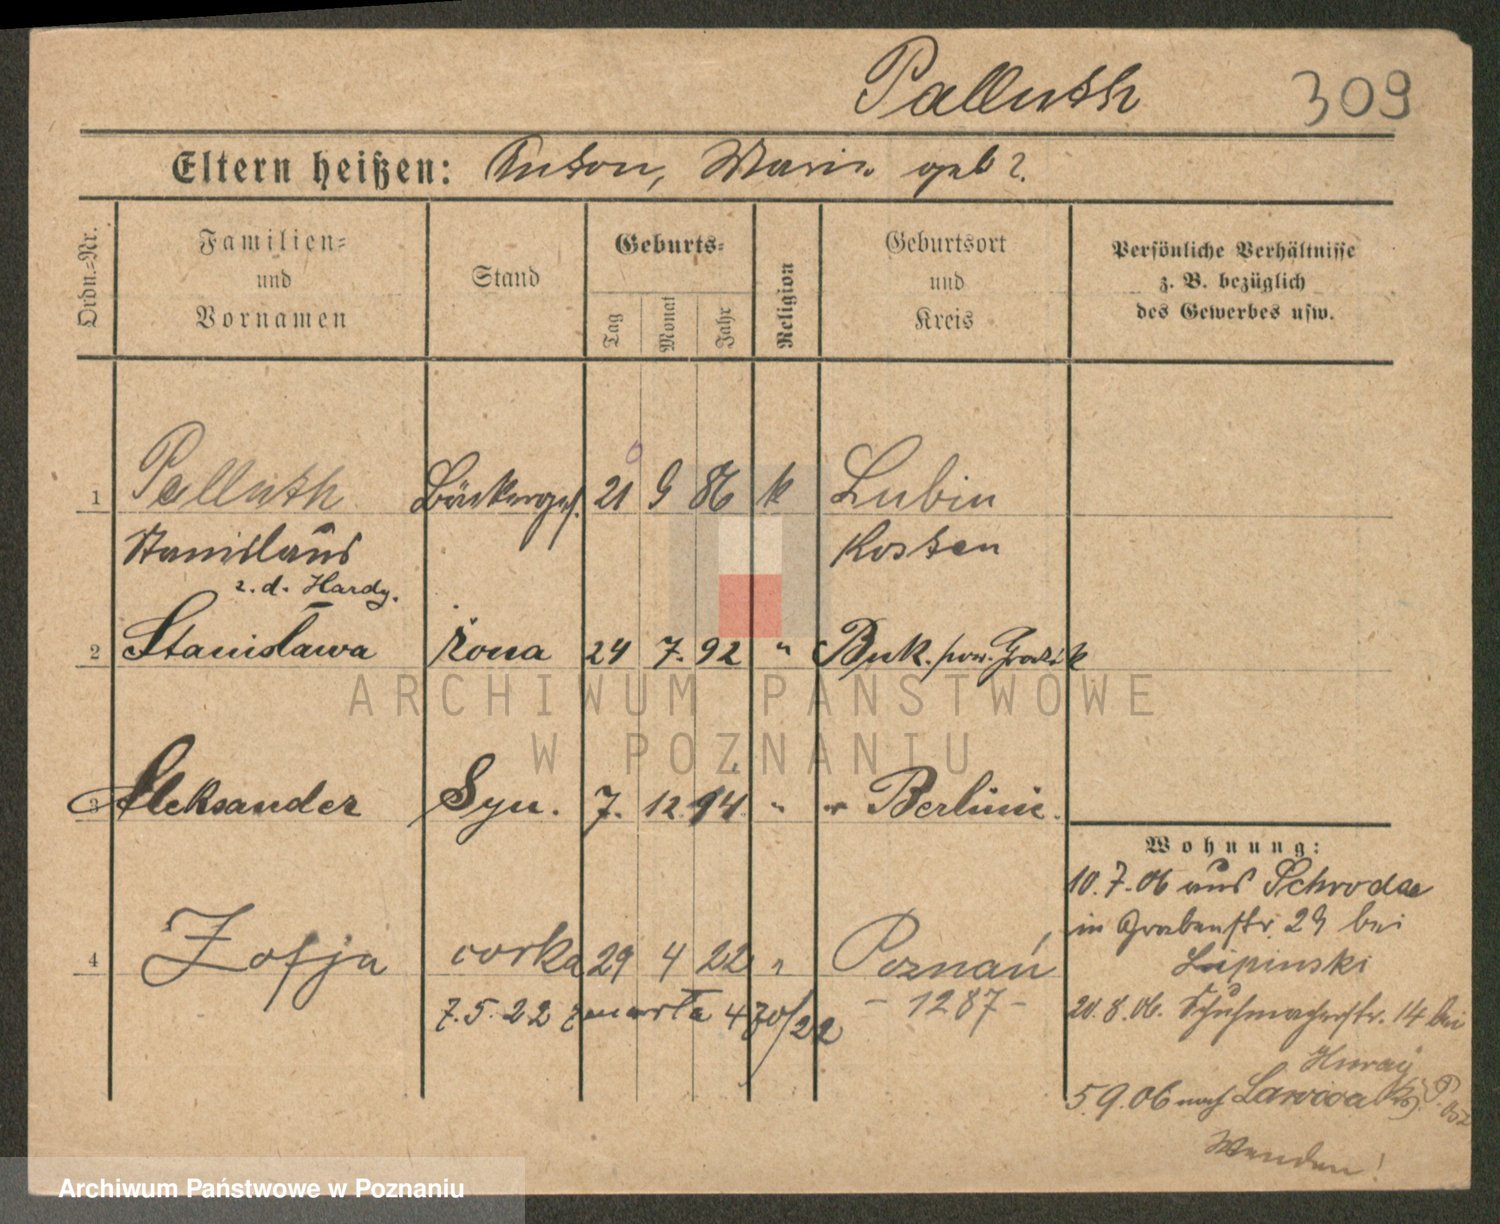 Palluth 309
Eltern heißen: Anton, Marie geb ?.
Ordn.=Nr.
Familien=
und
Vornamen
Stand
Geburts=
Tag
Monat
Jahr
Religion
Geburtsort
und
Kreis
Persönliche Verhältnisse
z. B. bezüglich
des Gewerbes usw.
1 Palluth Bäckerges. 21 9 86 k Lubin
Stanislaus Kosten
z. d. Hardy.
2 Stanisława żona 24 7. 92 " Buk. pow. Grodzisk
ARCHIWUM PAŃSTWOWE
W POZNANIU
3 Aleksander Syn. 7. 12. 14. " w Berlinie.
Wohnung:
10. 7. 06 aus Schroda
in Grabenstr. 29 bei
4 Zofja córka 29 4 22 " Poznań
Lupinski
7. 5. 22 zmarła 470/22 - 1287 -
20. 8. 06. Schuhmacherstr. 14 bei
5 9. 06 nach Lawica
Wenden!
Archiwum Państwowe w Poznaniu